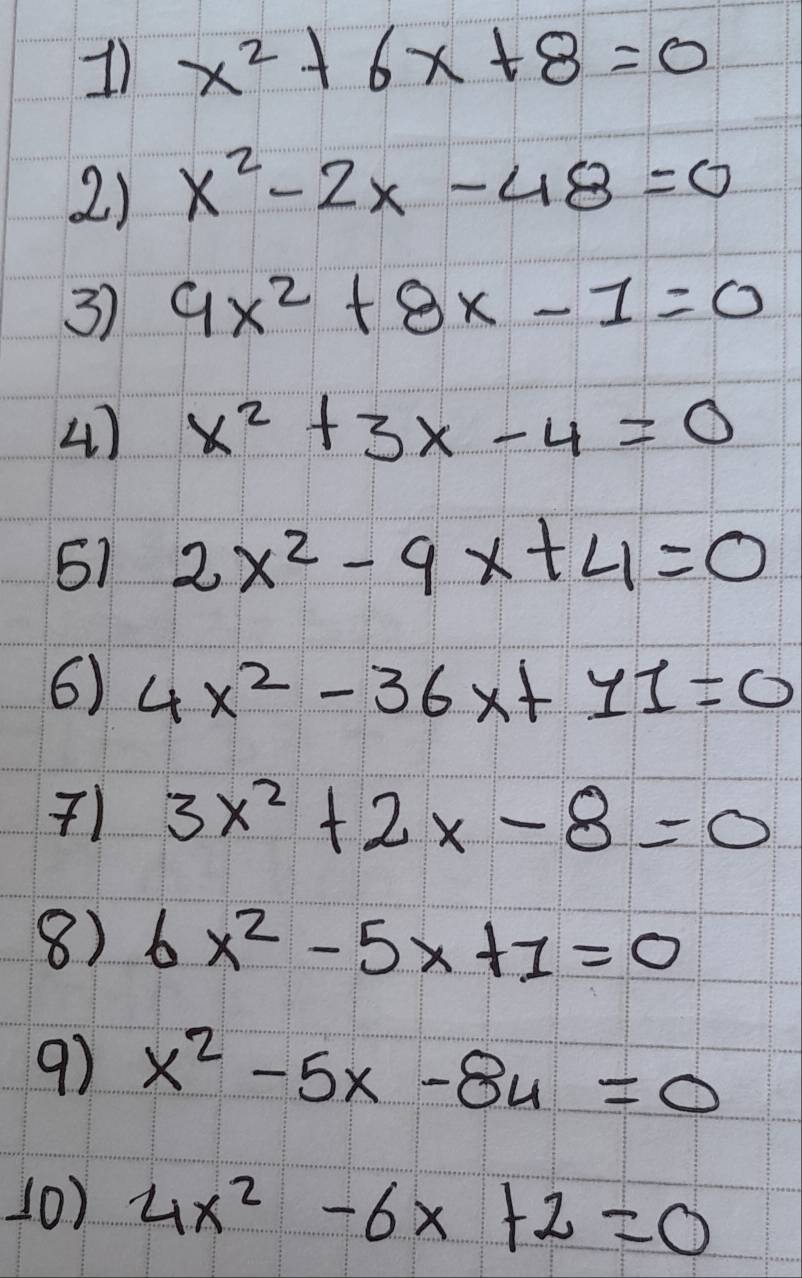 1) x² + 6x + 8 = 0
2) x² - 2x - 48 = 0
3) 9x² + 8x - 1 = 0
4) x² + 3x - 4 = 0
5) 2x² - 9x + 4 = 0
6) 4x² - 36x + 11 = 0
7) 3x² + 2x - 8 = 0
8) 6x² - 5x + 1 = 0
9) x² - 5x - 84 = 0
10) 4x² - 6x + 2 = 0